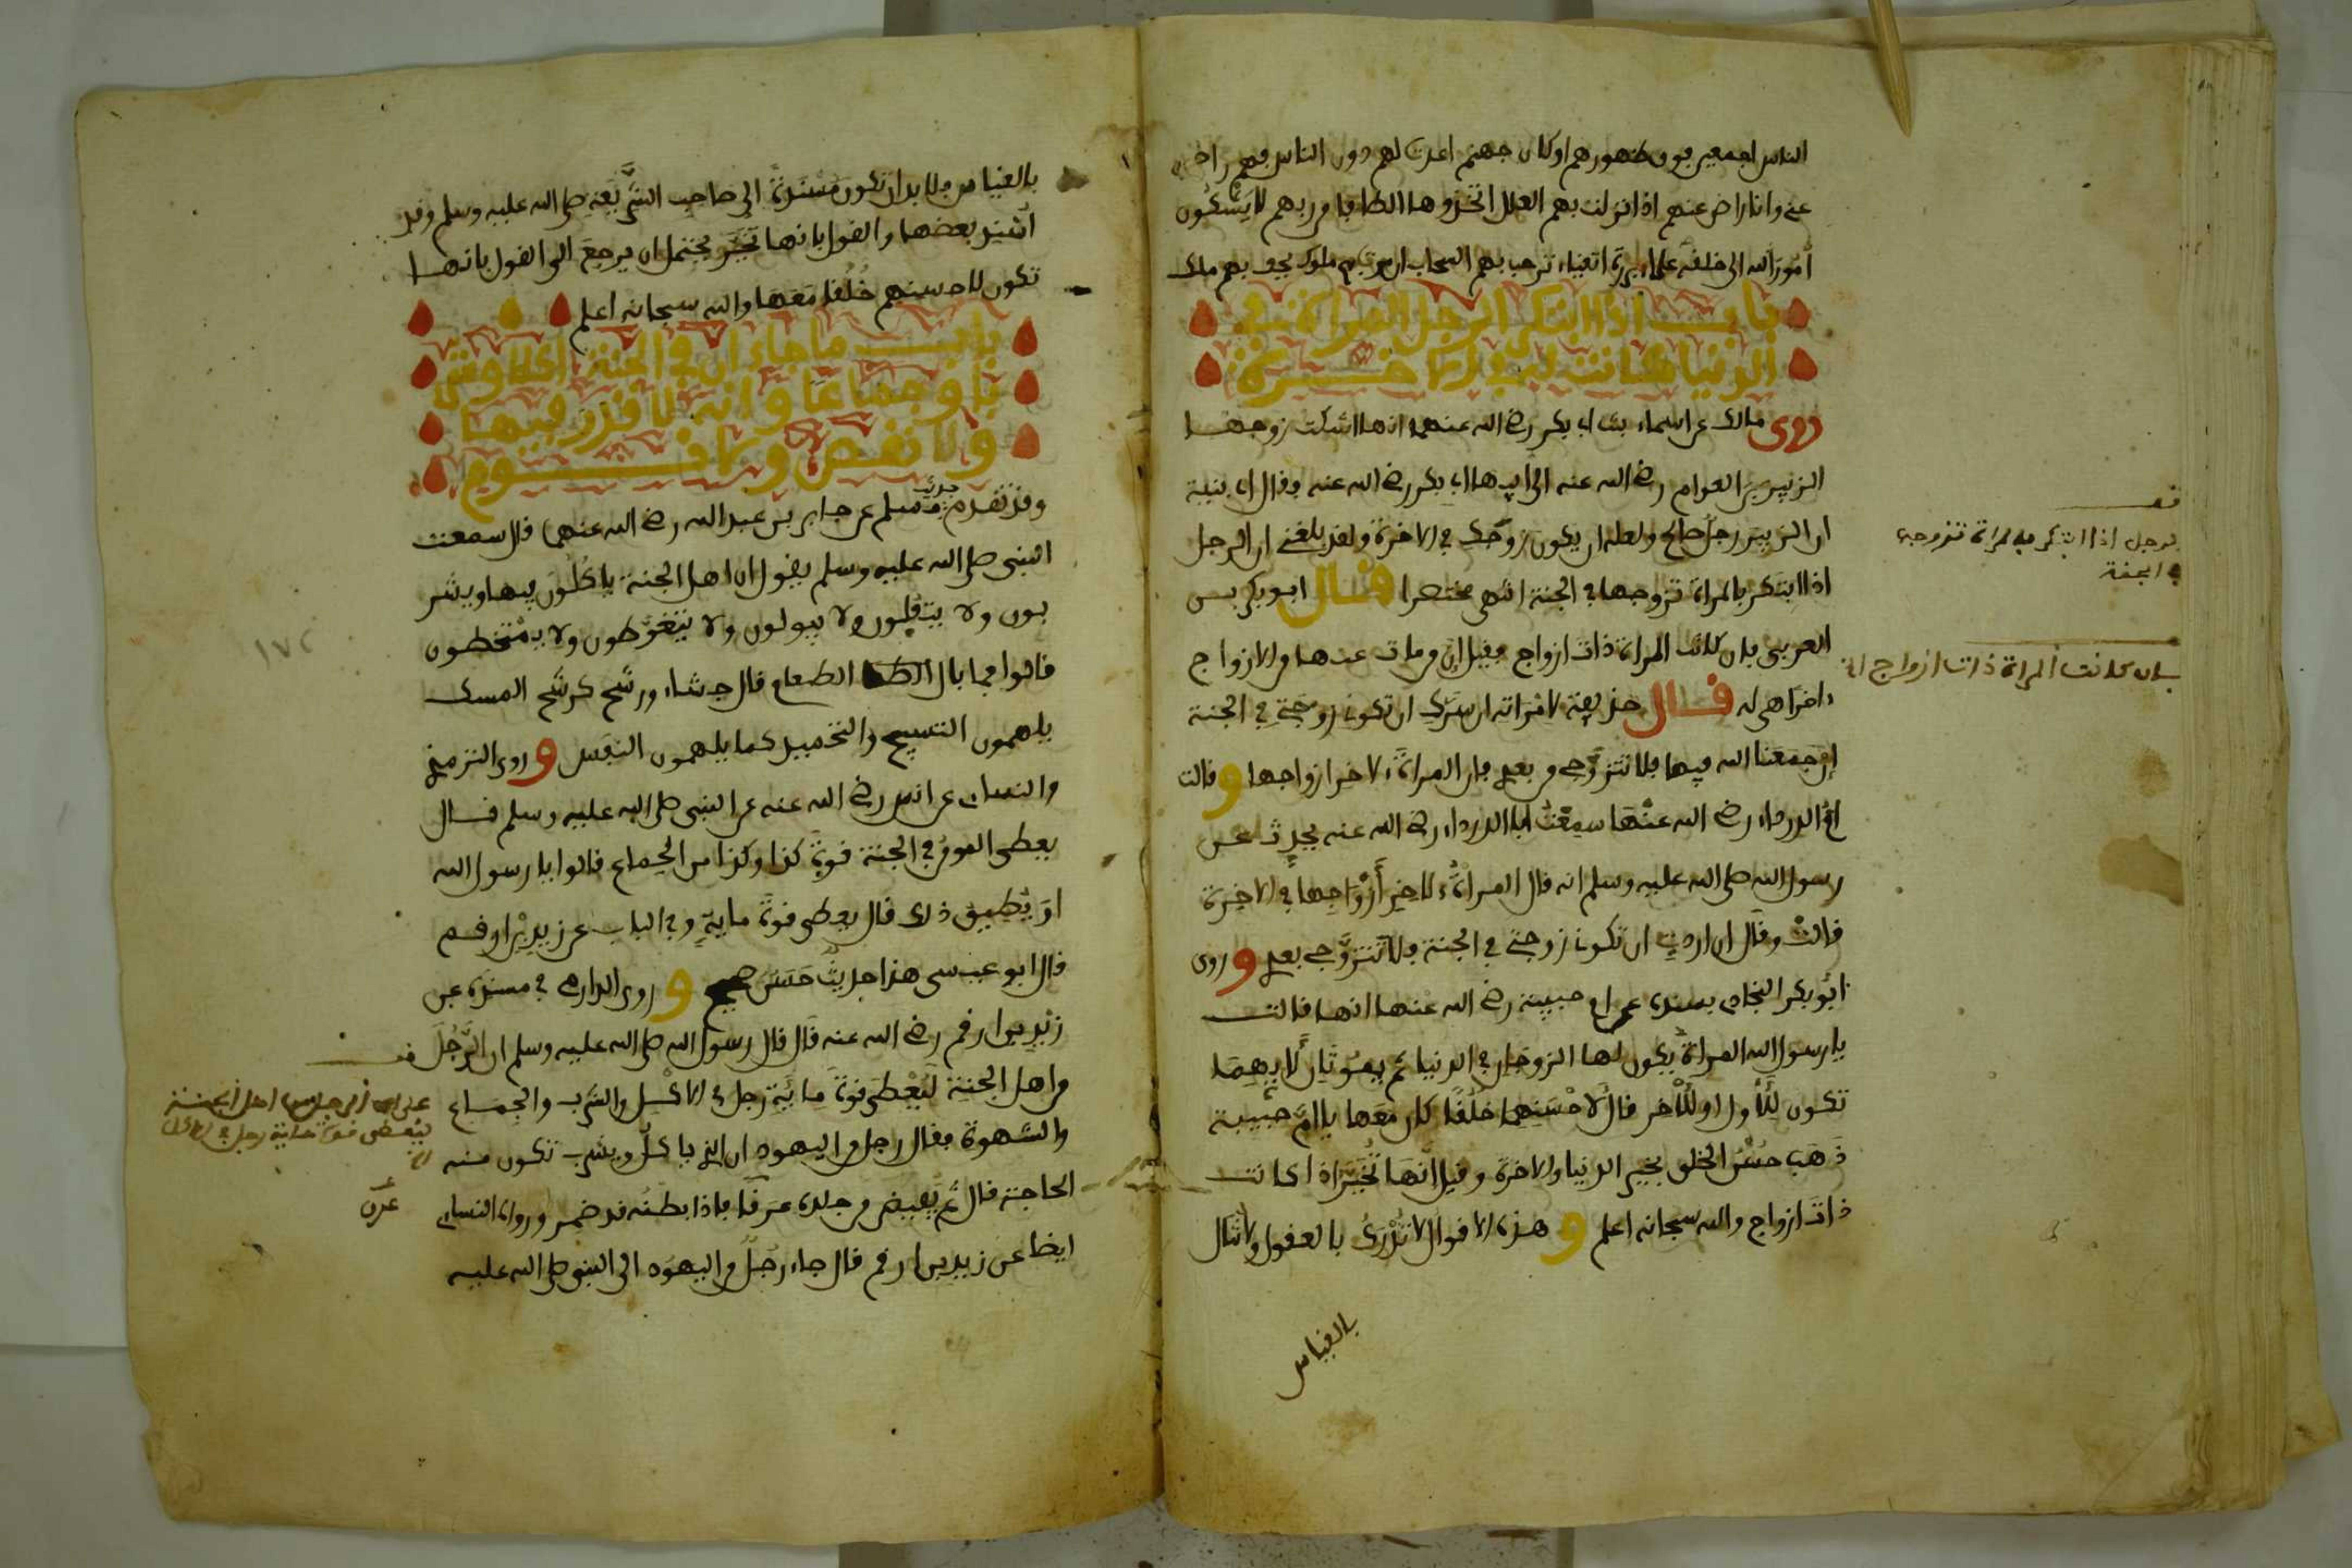 الناس اجمعين فوق ظهورهم او كان جهنم اعدت لهم دون الناس فهم راض
عني وانا راض عنهم اذا نزلت بهم العلل اتخذوها الطافا من ربهم لا يشكون
أمور الله الى خلقه علماء بررة اتقياء ترحب بهم السحاب
باب اذا ابتكر الرجل المراة في
الدنيا كانت له في الاخرة
روى مالك عن اسماء بنت ابي بكر رضي الله عنهما انها اشتكت زوجها
الزبير بن العوام رضي الله عنه الى ابيها ابي بكر رضي الله عنه فقال اي بنية
ان الزبير رجل صالح ولعله ان يكون زوجك في الاخرة ولقد بلغني ان الرجل
اذا ابتكر بالمراة تزوجها في الجنة انتهى مختصرا قال ابو بكر بن
العربي فان كانت المراة ذات ازواج فقيل ان من مات عنها من الازواج
اخرا هي له قال حذيفة لامراته ان سرك ان تكوني زوجتي في الجنة
ان جمعنا الله فيها فلا تتزوجي من بعدي فان المراة لاخر ازواجها وقالت
ام الدرداء رضي الله عنها سمعت ابا الدرداء رضي الله عنه يحدث عن
رسول الله صلى الله عليه وسلم انه قال المراة لاخر أزواجها في الاخرة
قالت وقال ان اردت ان تكوني زوجتي في الجنة فلا تتزوجي بعدي وروى
ابو بكر النجاد بسنده عن ام حبيبة رضي الله عنها انها قالت
يا رسول الله المراة يكون لها الزوجان في الدنيا ثم يموتان لايهما
تكون للأول او للأخر قال لاحسنهما خلقا كان معها يا ام حبيبة
ذهب حسن الخلق بخير الدنيا والاخرة وقيل انها تخير اذا كانت
ذات ازواج والله سبحانه اعلم وهذه الاقوال لا تدرك بالعقول ولا تنال
بالقياس
قف
الرجل اذا ابتكر بامراة تزوجها
في الجنة
فان كانت المراة ذات ازواج الخ
بالقياس فلا بد ان تكون مسندة الى صاحب الشريعة صلى الله عليه وسلم وقد
أسند بعضها والقول بانها تخير يحتمل ان يرجع الى القول بانها
تكون لاحسنهم خلقا معها والله سبحانه اعلم
باب ما جاء ان في الجنة اكلا وشر
با وجماعا وانه لا قذر فيها
ولا نقص ولا نوم
وقد تقدم حديث مسلم عن جابر بن عبد الله رضي الله عنهما قال سمعت
النبي صلى الله عليه وسلم يقول ان اهل الجنة ياكلون فيها ويشر
بون ولا يتفلون ولا يبولون ولا يتغوطون ولا يمتخطون
قالوا فما بال الطعام قال جشاء ورشح كرشح المسك
يلهمون التسبيح والتحميد كما يلهمون النفس وروى الترمذي
والنسائي عن انس رضي الله عنه عن النبي صلى الله عليه وسلم قال
يعطى المومن في الجنة قوة كذا وكذا من الجماع قالوا يا رسول الله
او يطيق ذلك قال يعطى قوة ماية وفي الباب عن زيد بن ارقم
قال ابو عيسى هذا حديث حسن صحيح وروى الدارمي في مسنده عن
زيد بن ارقم رضي الله عنه قال قال رسول الله صلى الله عليه وسلم ان الرجل
من اهل الجنة ليعطى قوة ماية رجل في الاكل والشرب والجماع
والشهوة فقال رجل من اليهود ان الذي ياكل ويشرب تكون منه
الحاجة قال ثم يفيض من جلده عرقا فاذا بطنه قد ضمر ورواه النسائي
ايضا عن زيد بن ارقم قال جاء رجل من اليهود الى النبي صلى الله عليه
قف
على ان الرجل من اهل الجنة
ليعطى قوة ماية رجل في الاكل
الخ
عرق
١٧٢